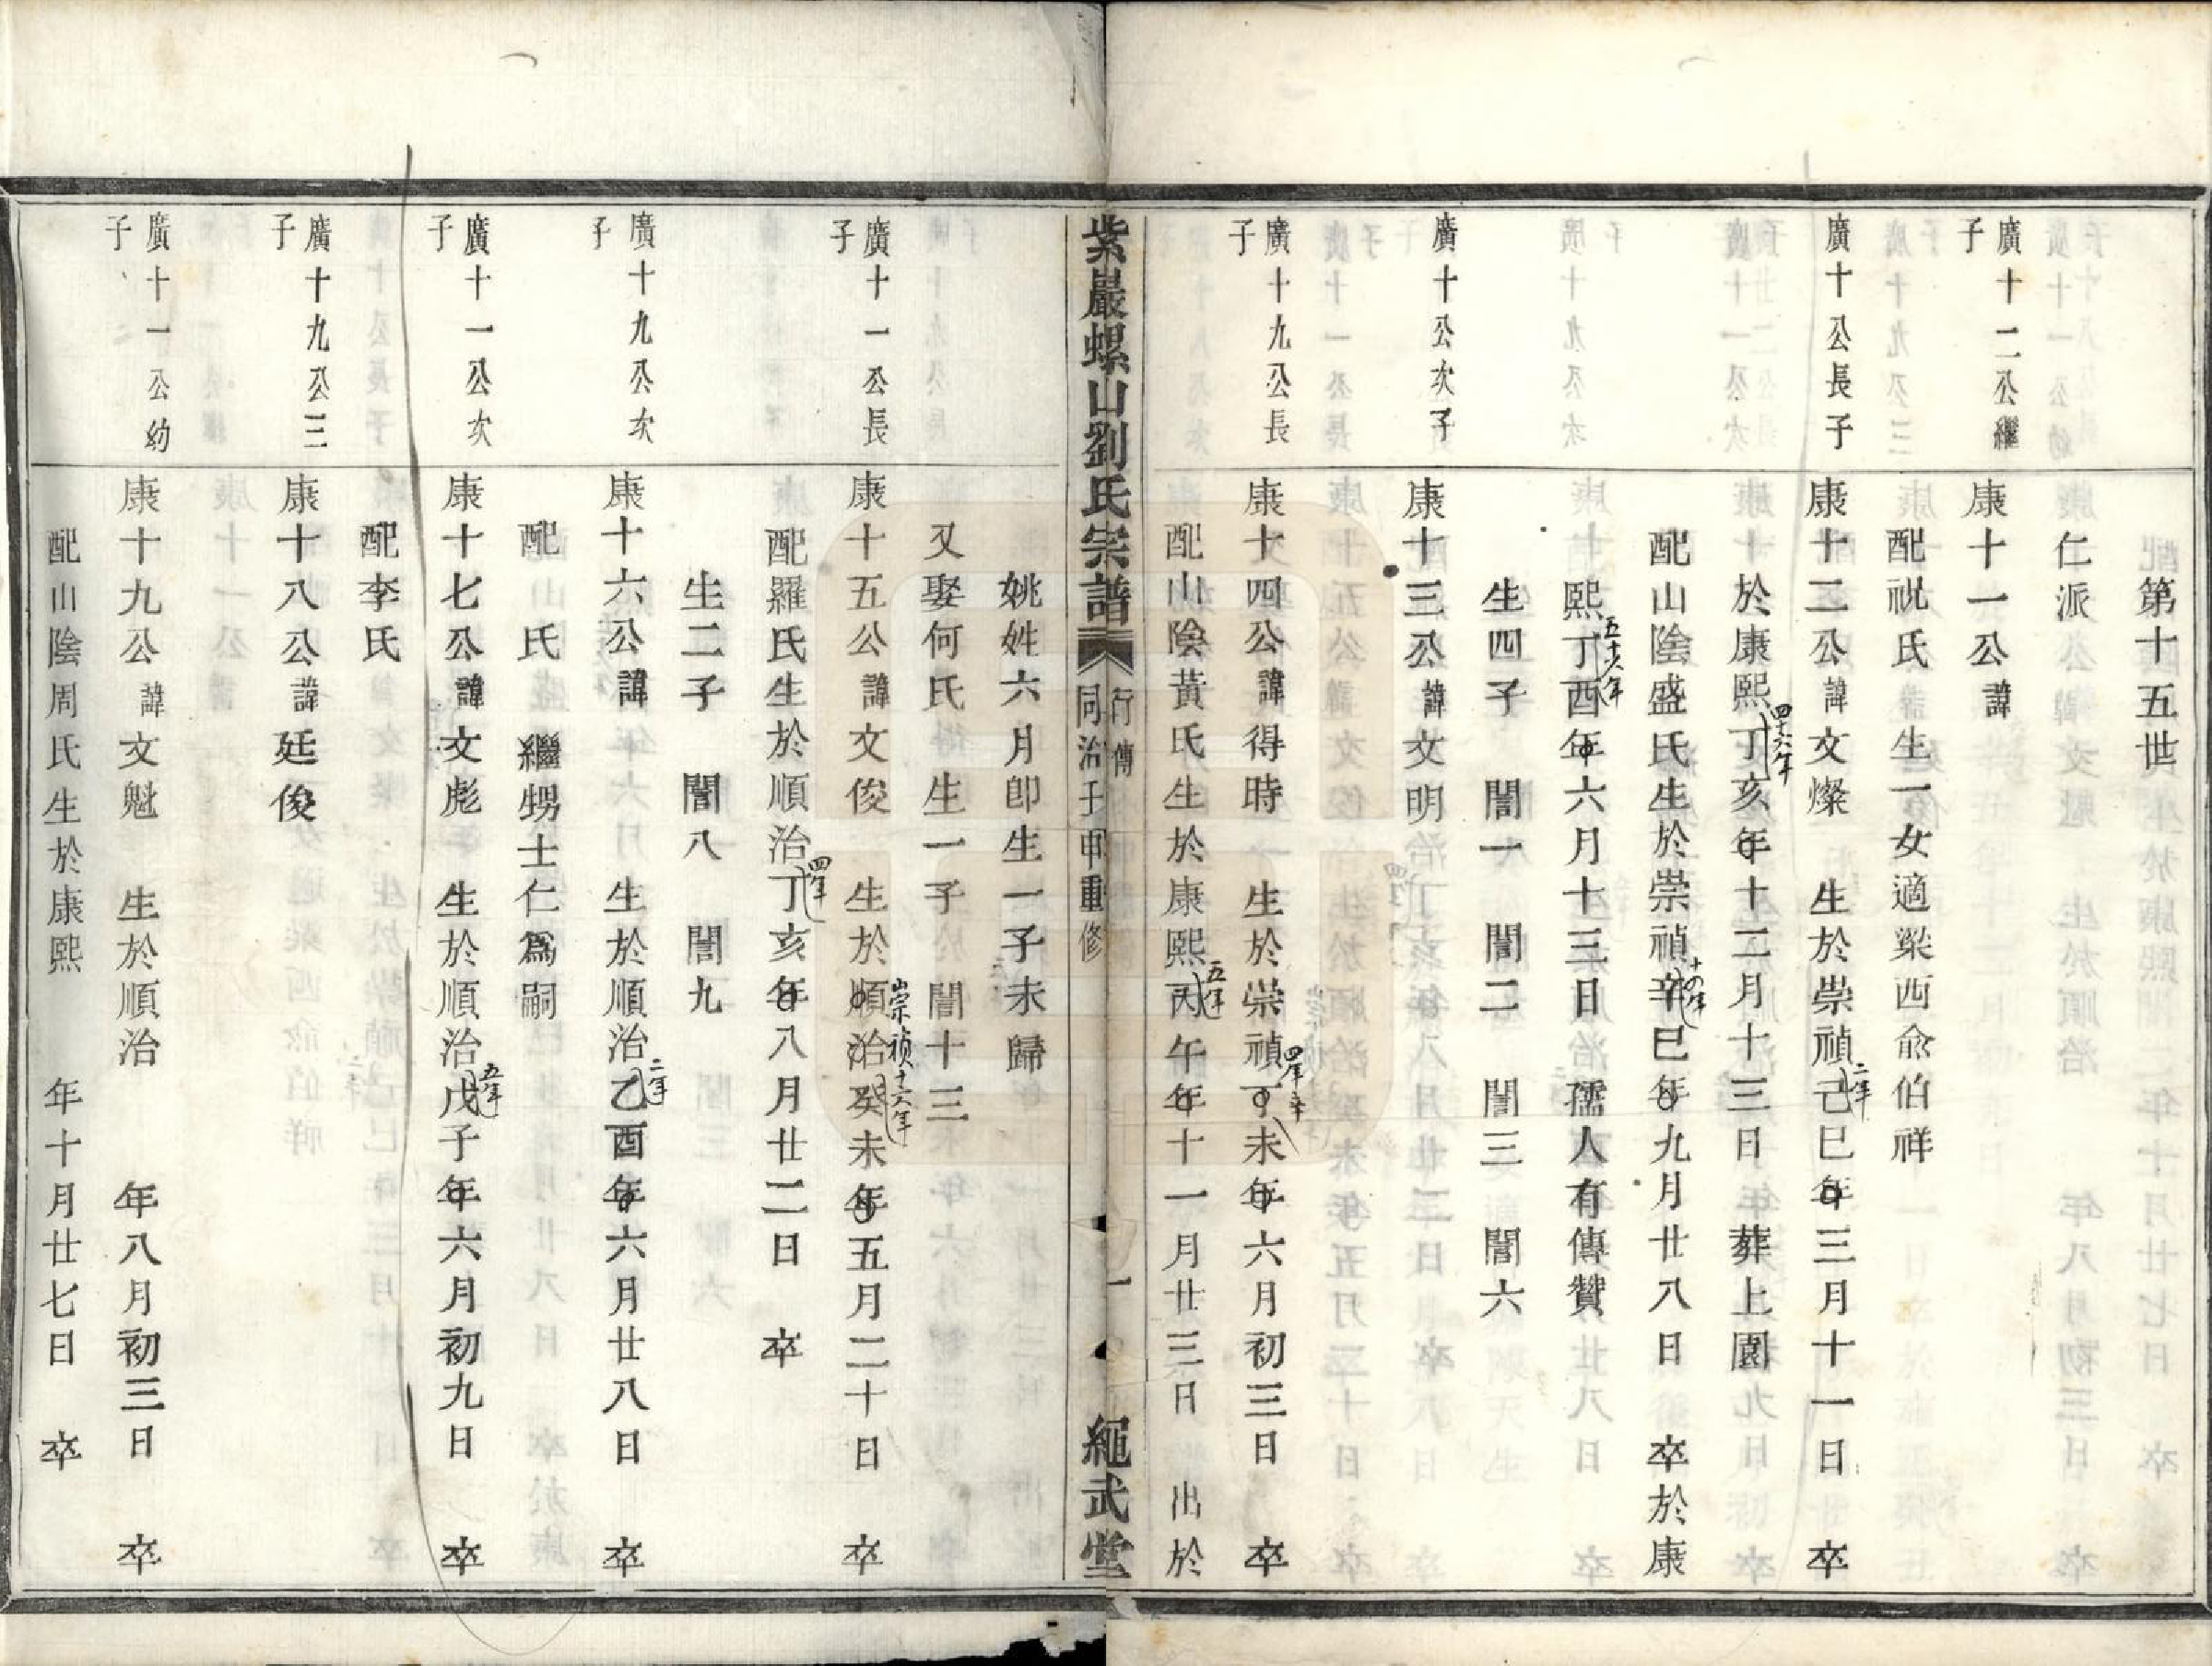 第十五世
仁派
廣十二公繼子
康十一公諱
配祝氏生一女適梁西俞伯祥
廣十公長子
康十二公諱文燦 生於崇禎己巳年三月十一日 卒
二年
於康熙丁亥年十二月十三日 葬上園
四十六年
配山陰盛氏生於崇禎辛巳年九月廿八日 卒於康
十四年
熙丁酉年六月十三日 孺人有傳贊
五十六年
生四子 誾一 誾二 誾三 誾六
廣十公次子
康十三公諱文明
廣十九公長子
康十四公諱得時 生於崇禎丁未年六月初三日 卒
四年辛
配山陰黃氏生於康熙丙午年十一月廿三日 出於
五年
紫巖螺山劉氏宗譜 行傳 同治壬申重修 一 繩武堂
姚姓六月卽生一子未歸
又娶何氏 生一子 誾十三
廣十一公長子
康十五公諱文俊 生於順治癸未年五月二十日 卒
崇禎十六年
配羅氏生於順治丁亥年八月廿二日 卒
四年
生二子 誾八 誾九
廣十九公次子
康十六公諱 生於順治乙酉年六月廿八日 卒
二年
配 氏 繼甥士仁爲嗣
廣十一公次子
康十七公諱文彪 生於順治戊子年六月初九日 卒
五年
配李氏
廣十九公三子
康十八公諱廷俊
廣十一公幼子
康十九公諱文魁 生於順治 年八月初三日 卒
配山陰周氏生於康熙 年十月廿七日 卒